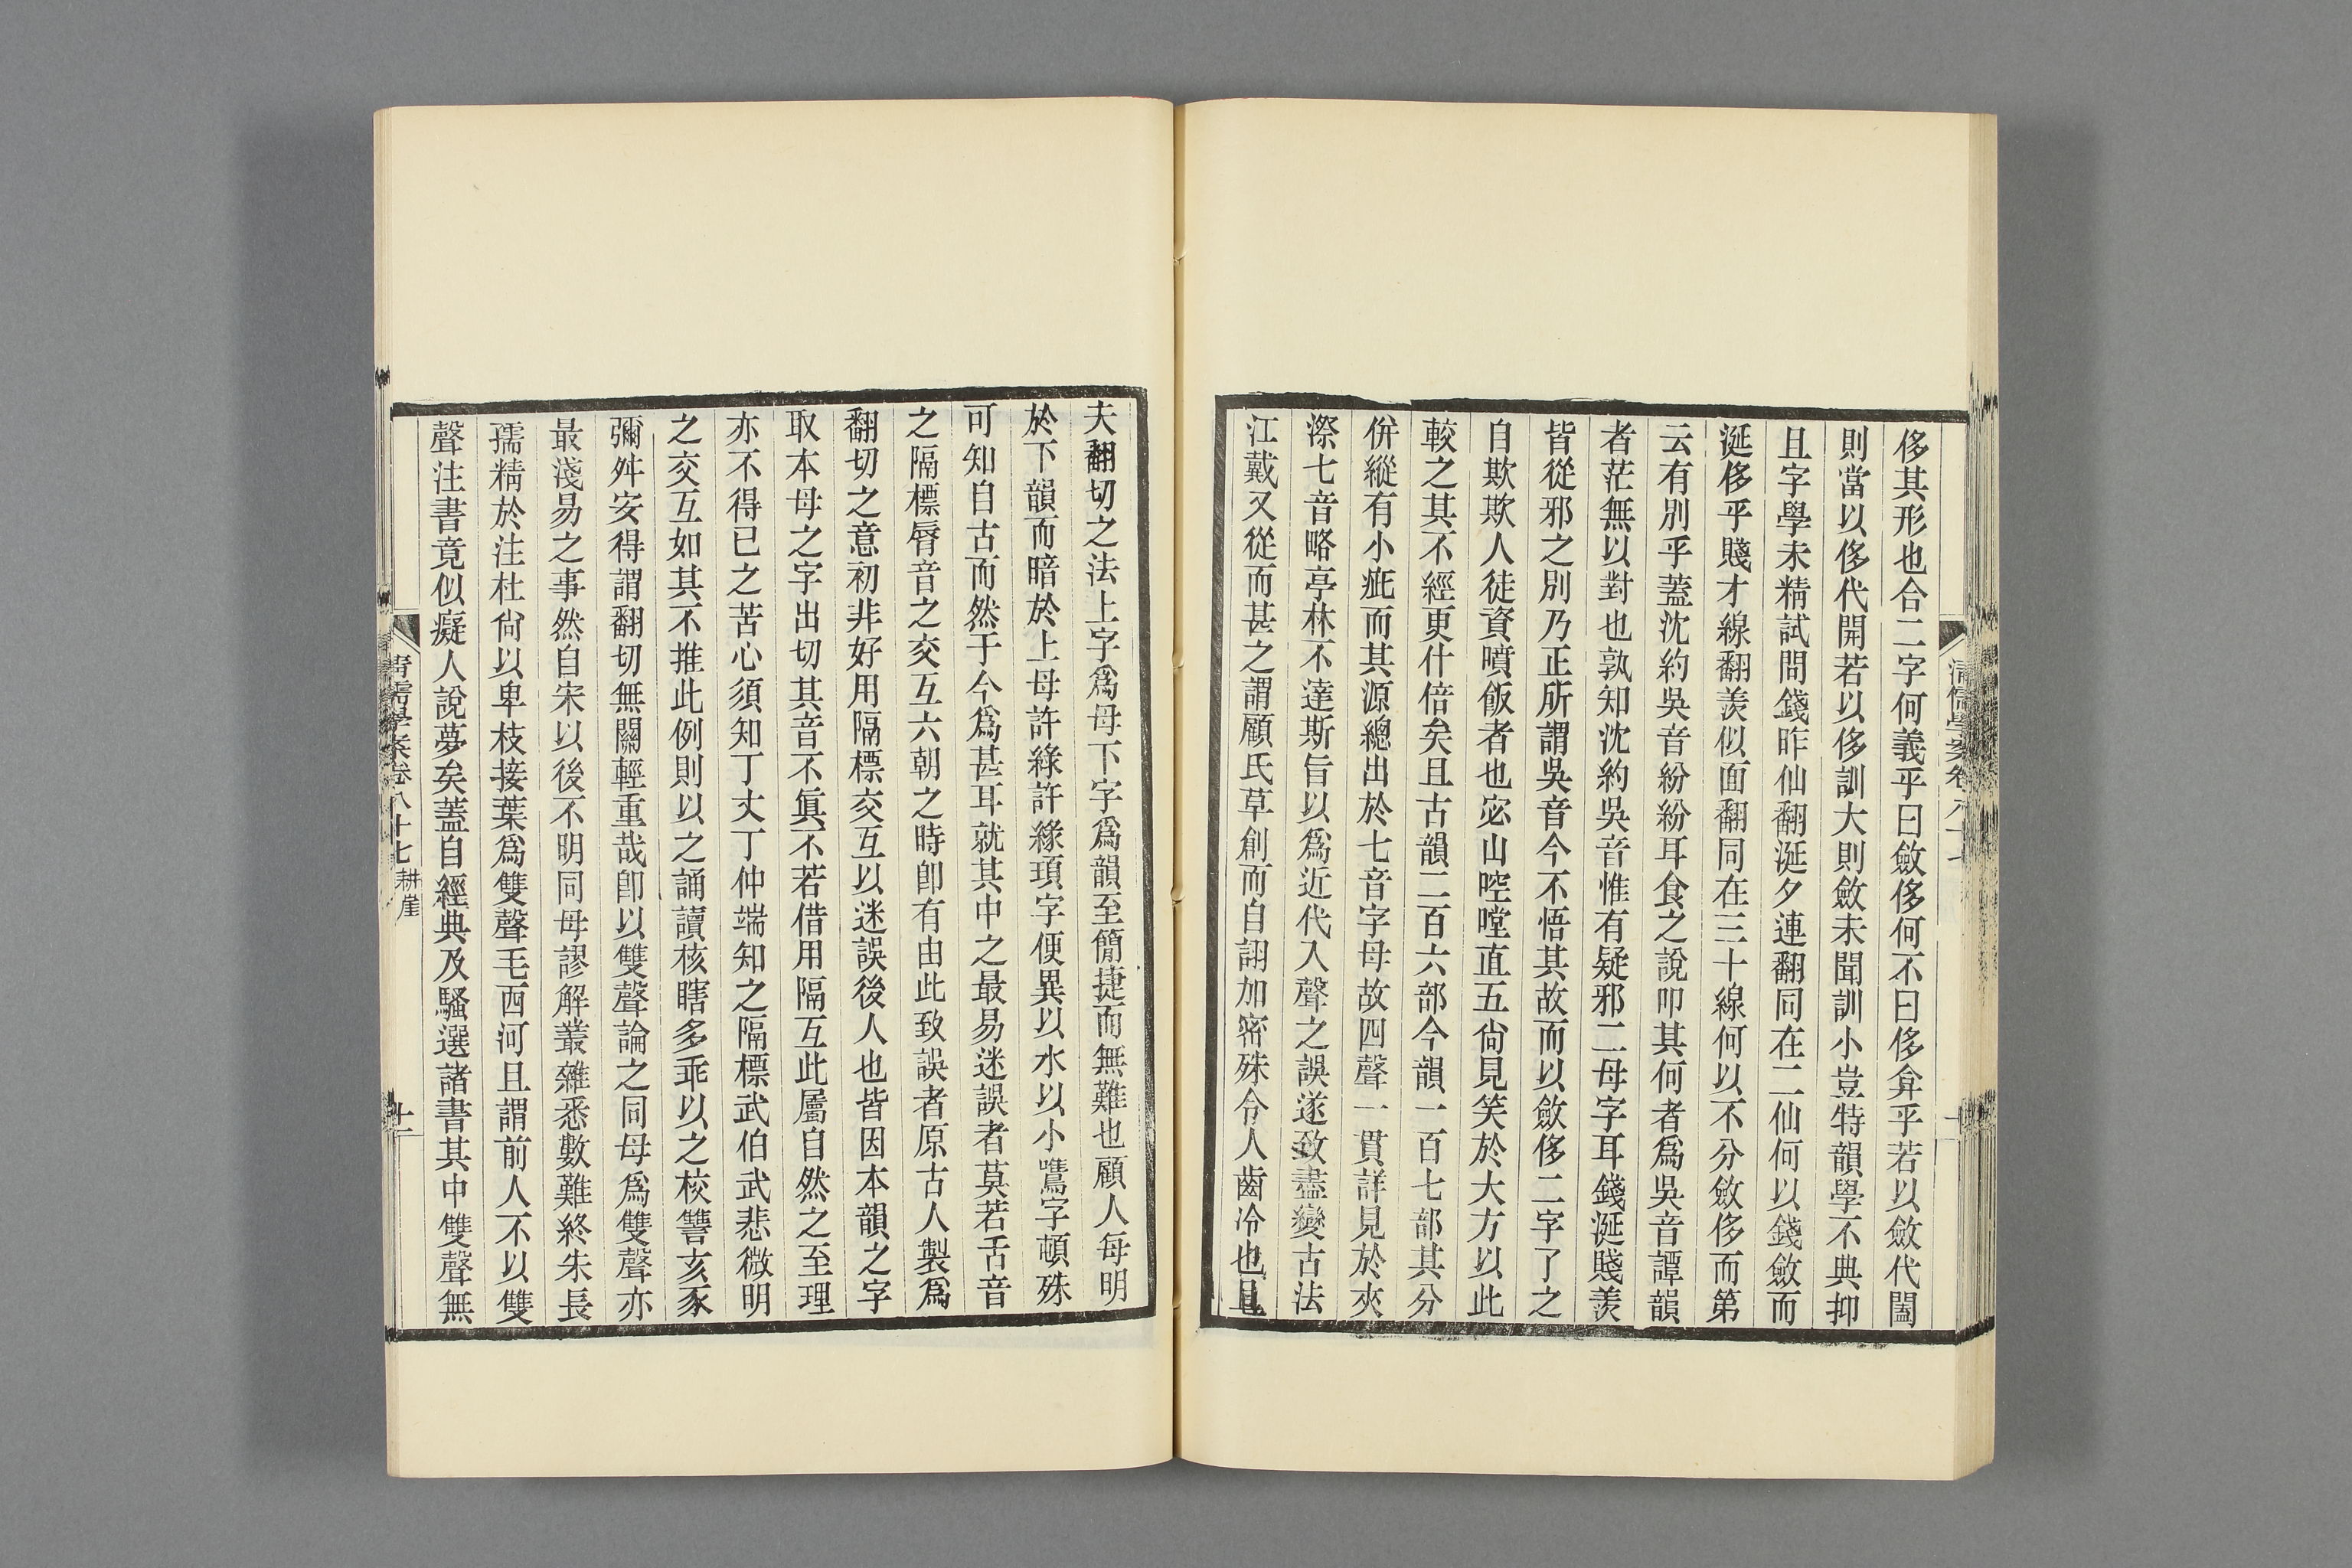 侈其形也合二字何義乎曰斂侈何不曰侈弇乎若以斂代闔
則當以侈代開若以侈訓大則斂未聞訓小豈特韻學不典抑
且字學未精試問錢昨仙翻涎夕連翻同在二仙何以錢斂而
涎侈乎賤才線翻羨似面翻同在三十線何以不分斂侈而第
云有別乎蓋沈約吳音紛紛耳食之說叩其何者爲吳音譚韻
者茫無以對也孰知沈約吳音惟有疑邪二母字耳錢涎賤羨
皆從邪之別乃正所謂吳音今不悟其故而以斂侈二字了之
自欺欺人徒資噴飯者也宓山啌嘡直五尙見笑於大方以此
較之其不經更什倍矣且古韻二百六部今韻一百七部其分
倂縱有小疵而其源總出於七音字母故四聲一貫詳見於夾
漈七音略亭林不達斯旨以爲近代入聲之誤遂致盡變古法
江戴又從而甚之謂顧氏草創而自詡加密殊令人齒冷也且
夫翻切之法上字爲母下字爲韻至簡捷而無難也顧人每明
於下韻而暗於上母許綠許緣頊字便異以水以小鷕字頓殊
可知自古而然于今爲甚耳就其中之最易迷誤者莫若舌音
之隔標脣音之交互六朝之時卽有由此致誤者原古人製爲
翻切之意初非好用隔標交互以迷誤後人也皆因本韻之字
取本母之字出切其音不眞不若借用隔互此屬自然之至理
亦不得已之苦心須知丁丈丁仲端知之隔標武伯武悲微明
之交互如其不推此例則以之誦讀核瞎多乖以之校讐亥豕
彌舛安得謂翻切無關輕重哉卽以雙聲論之同母爲雙聲亦
最淺易之事然自宋以後不明同母謬解叢雜悉數難終朱長
孺精於注杜尙以卑枝接葉爲雙聲毛西河且謂前人不以雙
聲注書竟似癡人說夢矣蓋自經典及騷選諸書其中雙聲無
清儒學案卷八十七 耕崖
十一